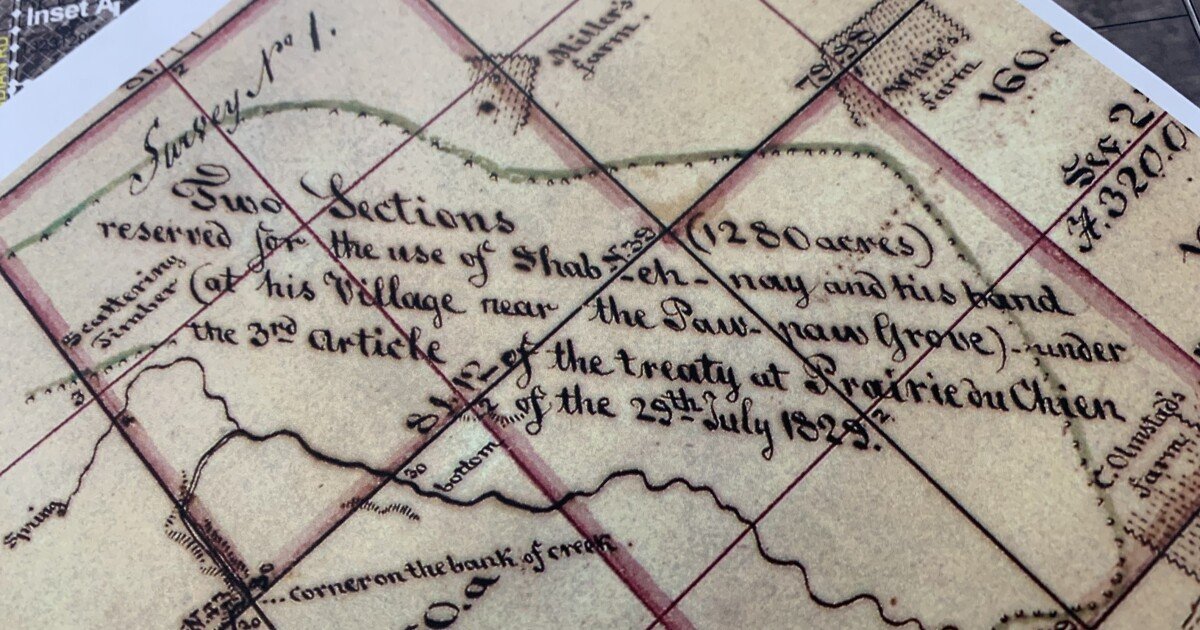 Inset A
Survey No 1.
Miller's
farm.
78.98
White's
farm
160.0
Sw. 2
A. 320.0
Two Sections (1280 acres)
reserved for the use of Shab-eh-nay and his band
(at his Village near the Paw-paw Grove)-under
the 3rd Article of the treaty at Prairie du Chien
of the 29th July 1829.
N.38
Scattering
Timber
81.12
30
bottom
Spring
C. Olmstead's
farm
corner on the bank of creek.